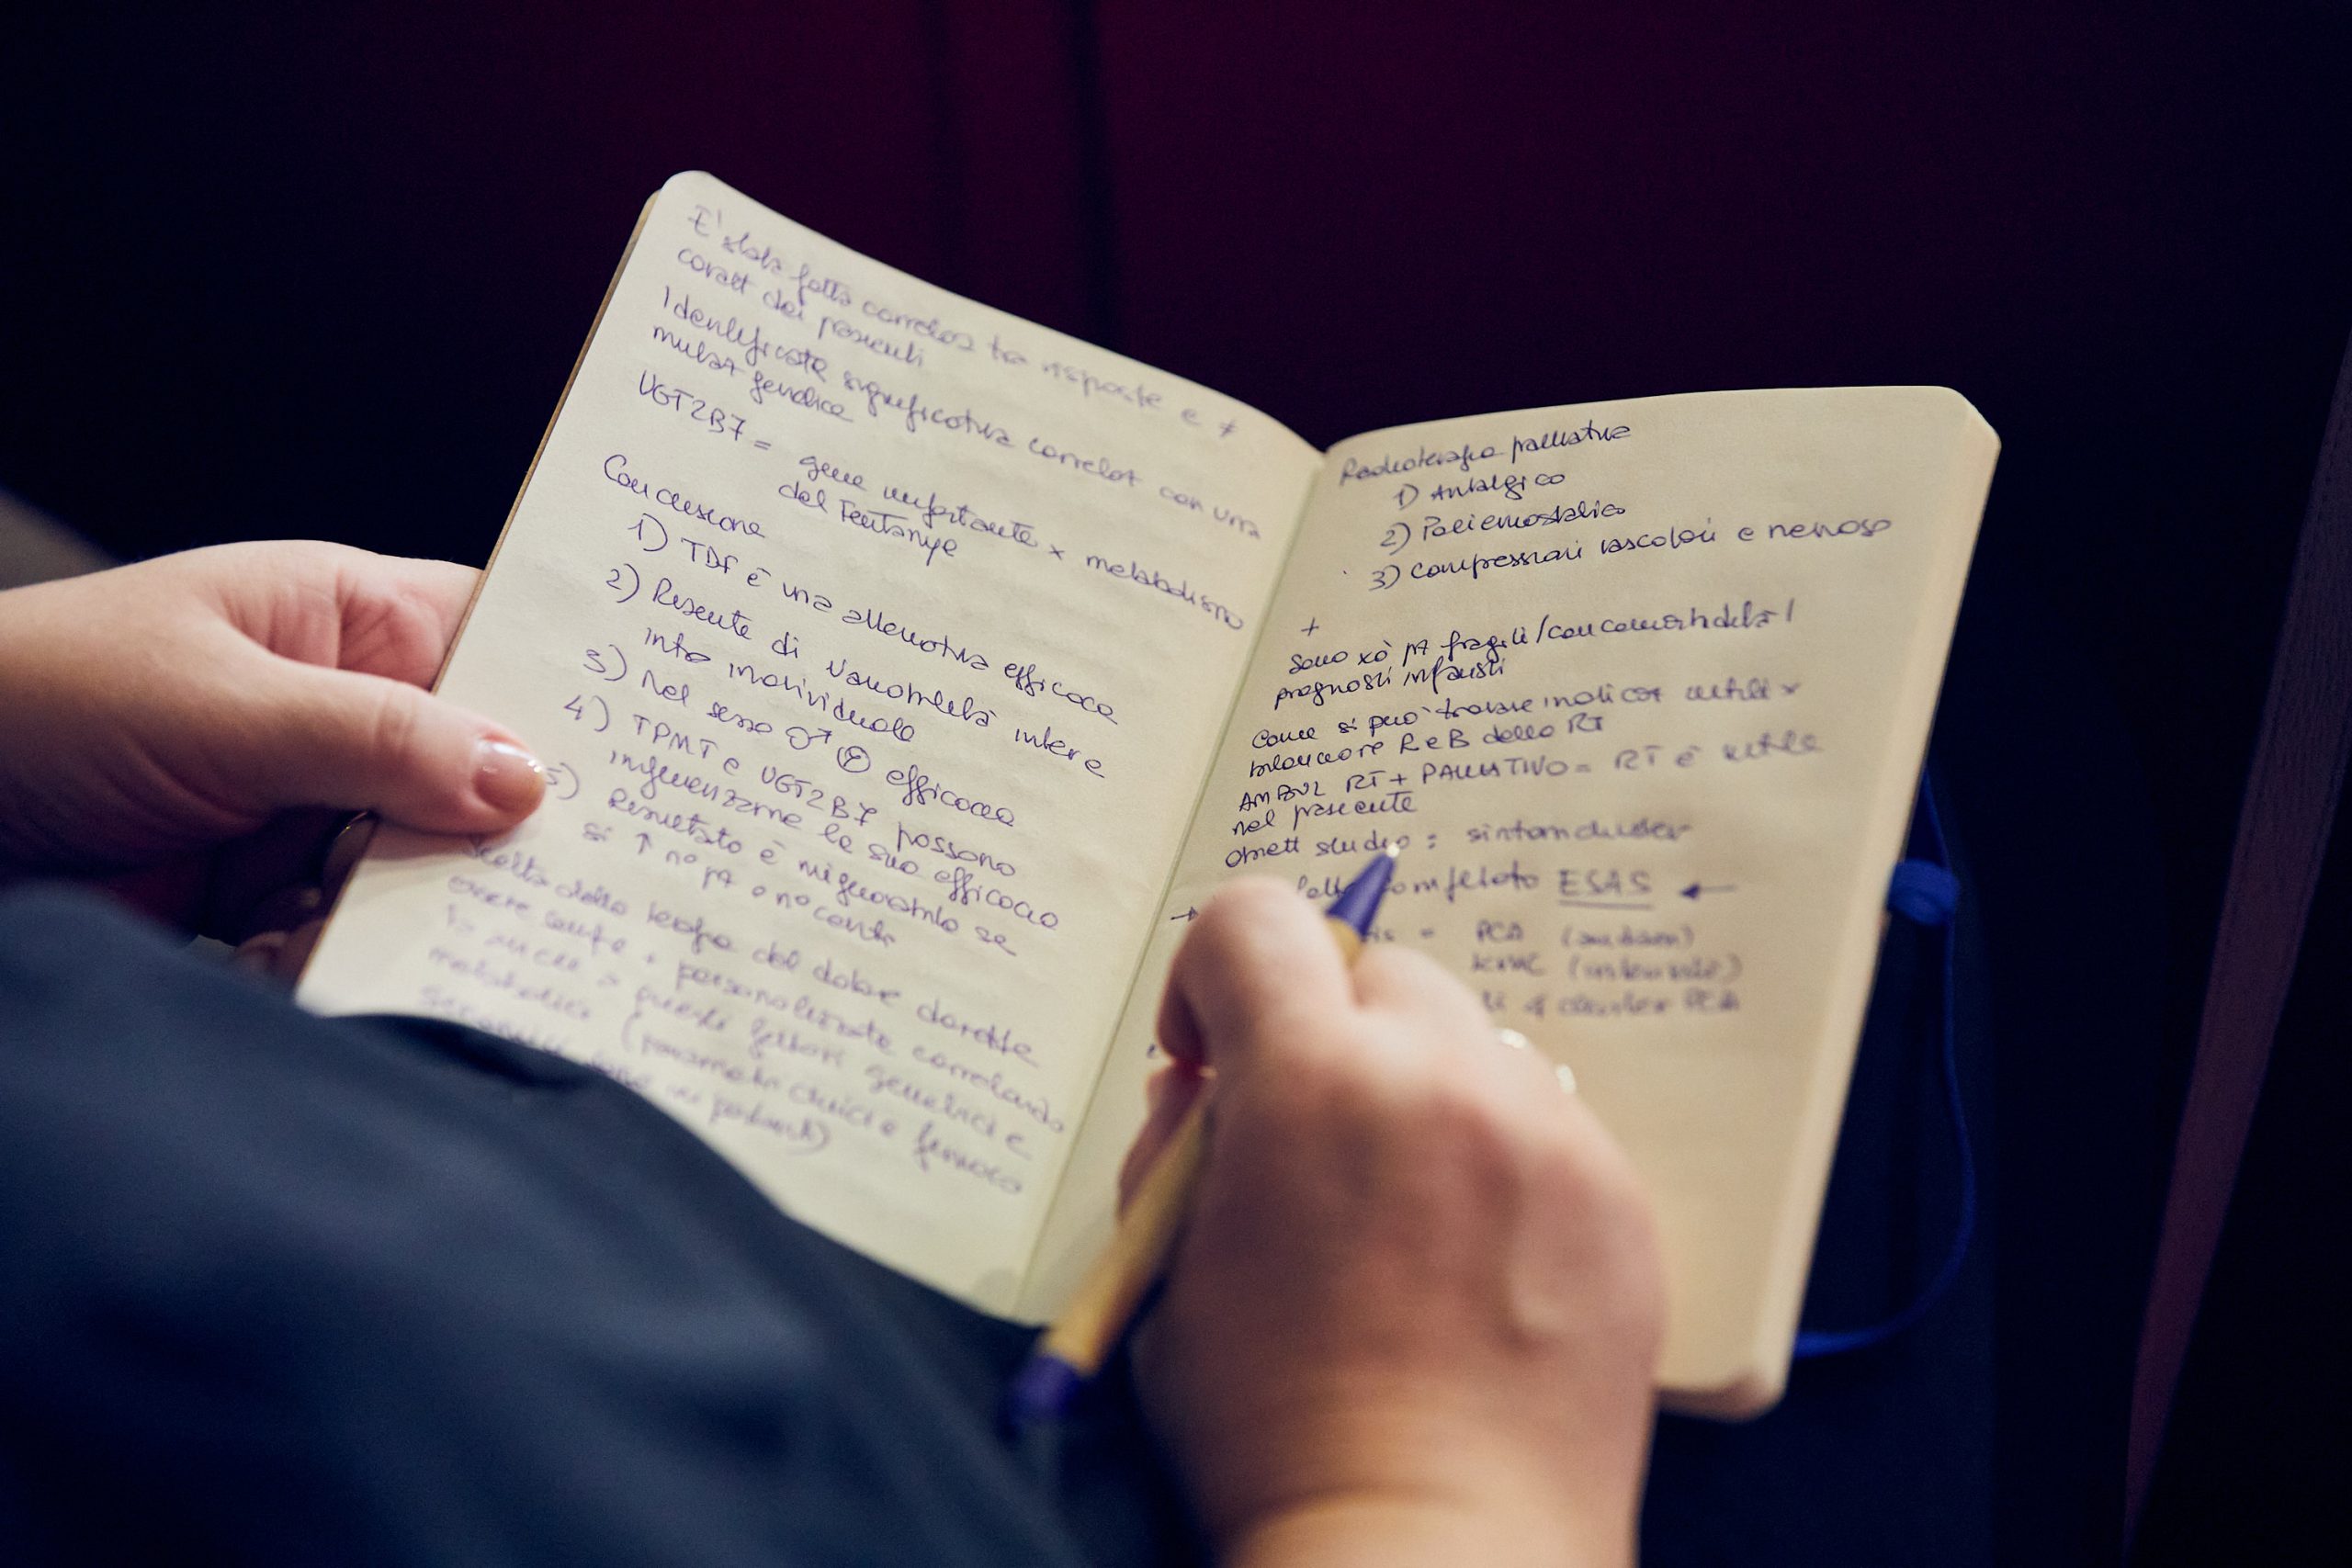 E' stata fatta correlaz tra risposte e ≠
caratt dei pazienti
Identificata significativa correlaz con una
mutaz genetica
UGT2B7 = gene importante x metabolismo
del Fentanye
Conclusione
1) TDF è una alternativa efficace
2) Risente di variabilità inter e
intra individuale
3) Nel sesso ♂ efficacia
4) TPMT e UGT2B7 possono
influenzarne la sua efficacia
5) Risultato è migliorabile se
si ↑ n° pz e n° centri
Scelta della terapia del dolore dovrebbe
essere sempre + personalizzata correlando
questi fattori genetici e
metabolici (parametri clinici e
Radioterapia palliativa
1) Antalgico
2)
3) Compressioni vascolari e nervose
+
Sono xò pz fragili/concomorbidità/
prognosi infausti
Come si può trovare indicaz utili x
bilanciare R e B della RT
AMBUL RT + PALLIATIVO = RT è utile
nel paziente
Obiett studio : sintom cluster
→ completo ESAS ←
= PCA
di cluster PCA